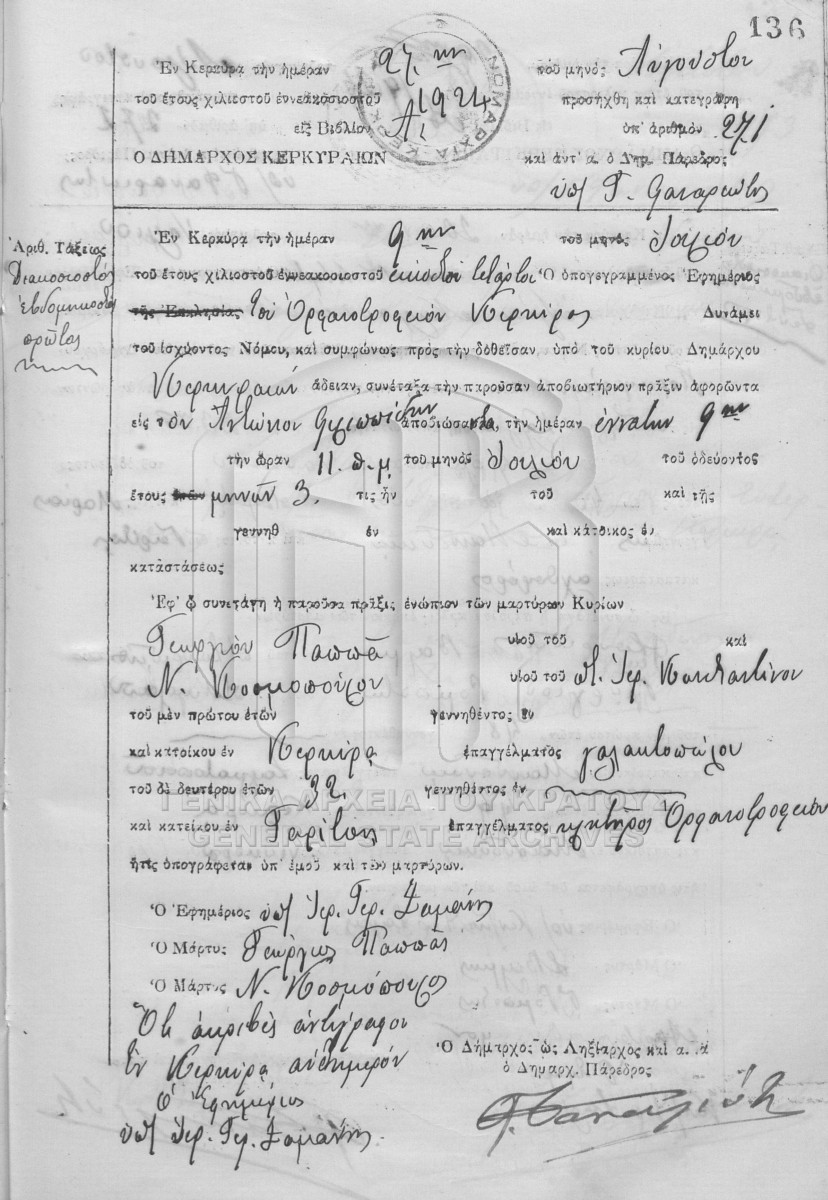 136
Ἐν Κερκύρᾳ τὴν ἡμέραν 27ην τοῦ μηνὸς Αὐγούστου
τοῦ ἔτους χιλιοστοῦ ἐννεακοσιοστοῦ 1924 προσήχθη καὶ κατεγράφη
εἰς Βιβλίον Α. ὑπ' ἀριθμὸν 271
Ο ΔΗΜΑΡΧΟΣ ΚΕΡΚΥΡΑΙΩΝ καὶ ἀντ' α. ὁ Δημ. Πάρεδρος
ΝΟΜΑΡΧΙΑ
Ἐν Κερκύρᾳ τὴν ἡμέραν 9ην τοῦ μηνὸς Ἰουλίου
Ἀριθ. Τάξεως
Διακοσιοστὸς
ἑβδομηκοστὸς
πρῶτος
τοῦ ἔτους χιλιοστοῦ ἐννεακοσιοστοῦ εἰκοστοῦ τετάρτου Ὁ ὑπογεγραμμένος Ἐφημέριος
τῆς Ἐκκλησίας τοῦ Ὀρφανοτροφείου Κερκύρας Δυνάμει
τοῦ ἰσχύοντος Νόμου, καὶ συμφώνως πρὸς τὴν δοθεῖσαν ὑπὸ τοῦ κυρίου Δημάρχου
Κερκυραίων ἄδειαν, συνέταξα τὴν παροῦσαν ἀποβιωτήριον πρᾶξιν ἀφορῶντα
εἰς τὸν Ἀντώνιον Φιλιππίδην ἀποβιώσαντα, τὴν ἡμέραν ἐννάτην 9ην
τὴν ὥραν 11. π.μ. τοῦ μηνὸς Ἰουλίου τοῦ ὁδεύοντος
ἔτους ἐτῶν μηνῶν 3. τις ἦν τοῦ καὶ τῆς
γεννηθ ἐν καὶ κάτοικος ἐν
καταστάσεως
Ἐφ' ᾧ συνετάγη ἡ παροῦσα πρᾶξις ἐνώπιον τῶν μαρτύρων Κυρίων
Γεωργίου Παππᾶ υἱοῦ τοῦ καὶ
Ν. Κοσμοπούλου υἱοῦ τοῦ Κωνσταντίνου
τοῦ μὲν πρώτου ἐτῶν γεννηθέντος ἐν
καὶ κατοίκου ἐν Κερκύρᾳ ἐπαγγέλματος γαλακτοπώλου
τοῦ δὲ δευτέρου ἐτῶν 32. γεννηθέντος ἐν
καὶ κατοίκου ἐν Γαρίτσῃ ἐπαγγέλματος κλητῆρος Ὀρφανοτροφείου
ἥτις ὑπογράφεται ὑπ' ἐμοῦ καὶ τῶν μαρτύρων.
ΓΕΝΙΚΑ ΑΡΧΕΙΑ ΤΟΥ ΚΡΑΤΟΥΣ
GENERAL STATE ARCHIVES
Ὁ Ἐφημέριος υπ/ Ἱερ. Γερ. Ζαμάνης
Ὁ Μάρτυς Γεώργιος Παππᾶς
Ὁ Μάρτυς Ν. Κοσμόπουλος
Ὅτι ἀκριβὲς ἀντίγραφον
Ἐν Κερκύρᾳ αὐθημερόν
Ὁ Ἐφημέριος
υπ/ Ἱερ. Γερ. Ζαμάνης
Ὁ Δήμαρχος ὡς Ληξίαρχος καὶ ἀ. ἀ
ὁ Δημαρχ. Πάρεδρος